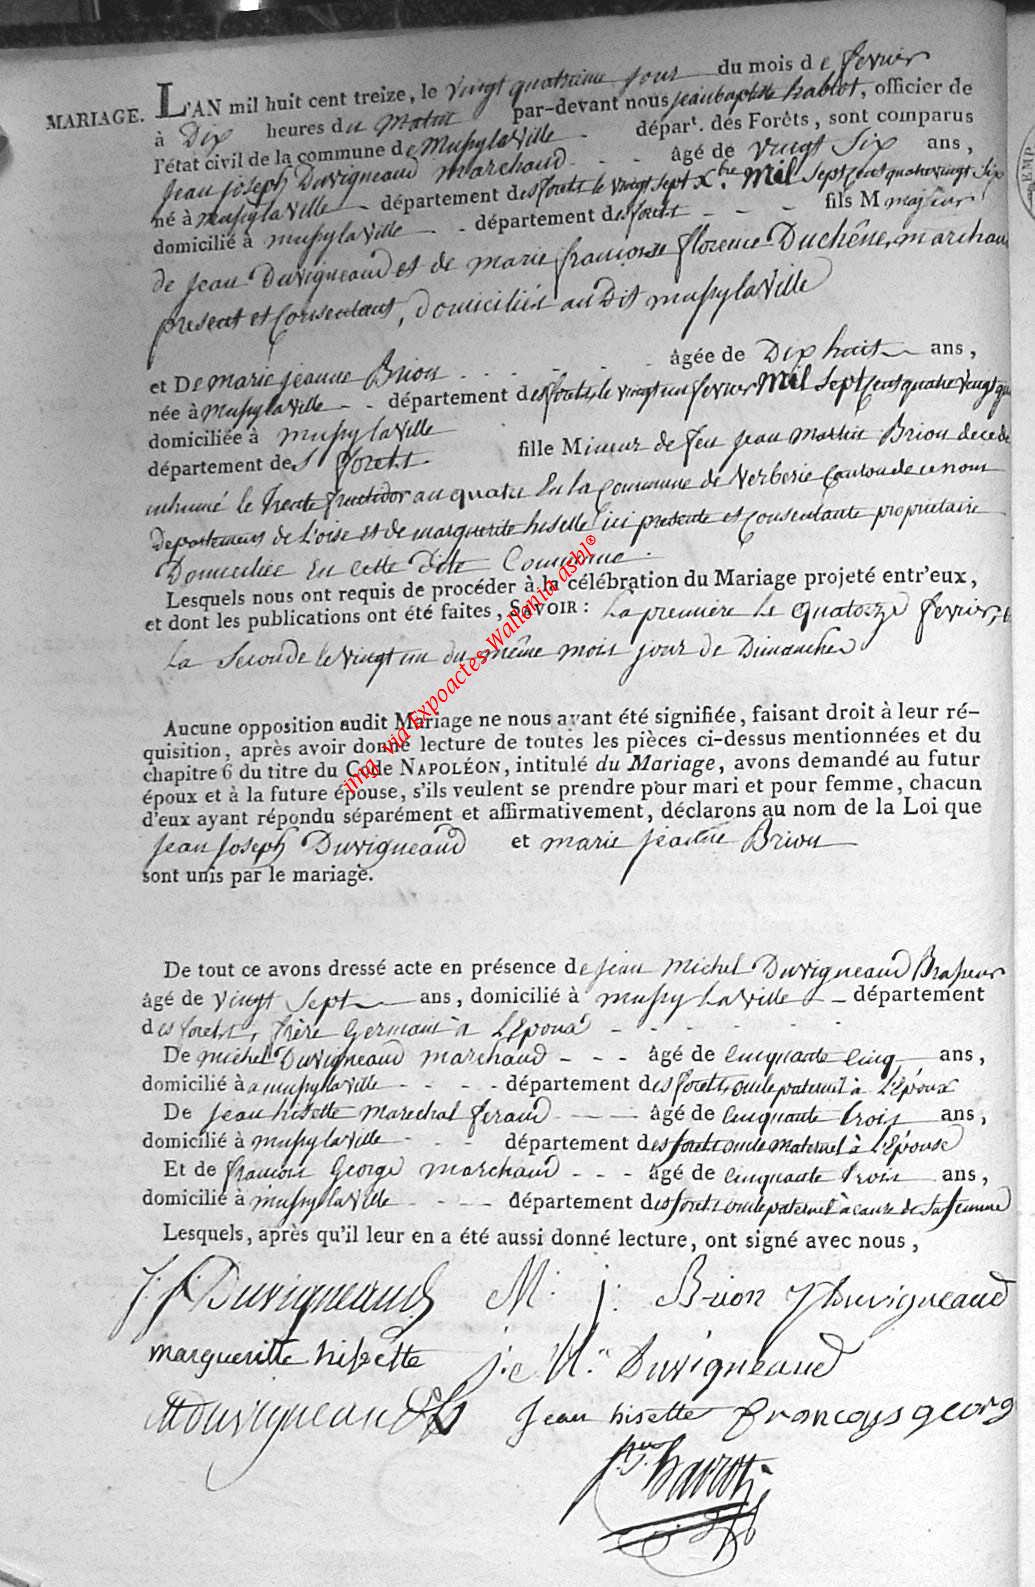 MARIAGE. L'AN mil huit cent treize, le vingt quatrieme jour du mois de fevrier
à Dix heures du Matin par-devant nous jean baptiste hablot, officier de
l'état civil de la commune de Mussy la Ville départ. des Forêts, sont comparus
Jean joseph Duvigneaud marchand - - - âgé de vingt Six ans,
né à mussy la ville - département des forets le vingt sept Xbre Mil Sept Cent quatrevingt Six
domicilié à mussy la ville - - département des forets - - - fils M majeur
de jean Duvigneaud et de marie francoise florence Duchêne, marchan
present et Consentant, domiciliés au Dit mussy la Ville
et De marie jeanne Brion - - - - - - âgée de Dix huit ans,
née à Mussy la Ville - - département des forets, le vingt un fevrier Mil Sept Cent quatre Vingt
domiciliée à mussy la ville
département des forets. fille Mineur de feu jean Martin Brion decede
inhumé le trente fructidor an quatre en la Commune de Verberie Canton de ce nom
Departement de L'oise et de marguerite hiselle ici presente et Consentante propriétaire
Domiciliée en cette Dite Commune.
Lesquels nous ont requis de procéder à la célébration du Mariage projeté entr'eux,
et dont les publications ont été faites, SAVOIR: La première le quatorze fevrier,
La Seconde le vingt un du même mois jour de Dimanche
Aucune opposition audit Mariage ne nous ayant été signifiée, faisant droit à leur ré-
quisition, après avoir donné lecture de toutes les pièces ci-dessus mentionnées et du
chapitre 6 du titre du Code NAPOLÉON, intitulé du Mariage, avons demandé au futur
époux et à la future épouse, s'ils veulent se prendre pour mari et pour femme, chacun
d'eux ayant répondu séparément et affirmativement, déclarons au nom de la Loi que
jean joseph Duvigneaud et marie jeanne Brion
sont unis par le mariage.
De tout ce avons dressé acte en présence de jean Michel Duvigneaud Brasseur
âgé de vingt Sept ans, domicilié à mussy la Ville - département
des forets, frère Germain à L'Epoux - - - - -
De michel Duvigneaud marchand - - - âgé de Cinquante Cinq ans,
domicilié à a mussy la ville - - - - département des forets, oncle paternel à L'Epoux
De jean hisette marechal feraud - - - âgé de Cinquante trois ans,
domicilié à mussy la ville - - - département des forets oncle maternel à L'Epouse
Et de francois George marchand - - - âgé de Cinquante trois ans,
domicilié à mussy la ville - - - - département des forets oncle paternel à cause de sa femme
Lesquels, après qu'il leur en a été aussi donné lecture, ont signé avec nous,
j. j. Duvigneaud M: j: Brion J Duvigneaud
margueritte hisette j. Mel Duvigneaud
M Duvigneaud jean hisette francoys georg
img via Expoactes-Wallonia asbl®